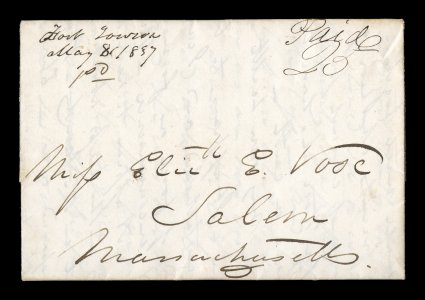 Fort Towson
May 8 1837
pd
Paid
25
Miss Elizth E. Vose
Salem
Massachusetts.